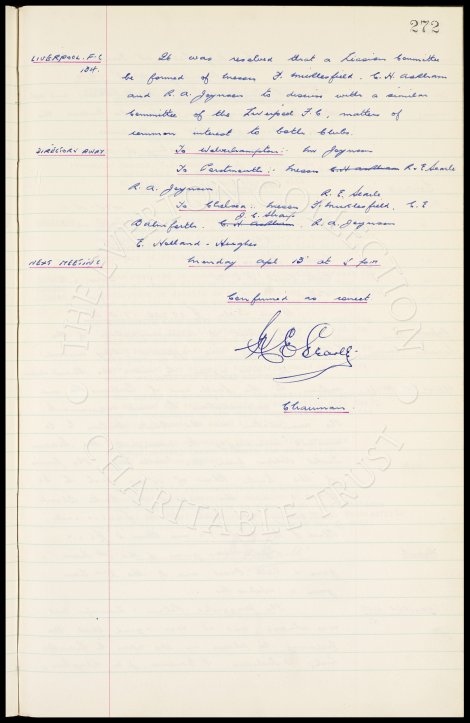 272
LIVERPOOL. F.C It was resolved that a Liaison Committee
be formed of Messrs F. Micklesfield, C. H. Askham
and R. A. Joynson to discuss with a similar
Committee of the Liverpool F.C, matters of
common interest to both Clubs.
DIRECTORS AWAY To Wolverhampton:- Mr Joynson
To Portsmouth:- Messrs C. H. Askham R. E Searle
R. A. Joynson R. E. Searle
To Chelsea: Messrs F. Micklesfield, C. E
J. C. Sharp
Balmforth. C. H. Askham. R. A. Joynson
E. Holland-Hughes
NEXT MEETING. Monday Apl 13 at 5 p.m.
Confirmed as correct
R E Searle.
Chairman.
THE EVERTON COLLECTION
CHARITABLE TRUST